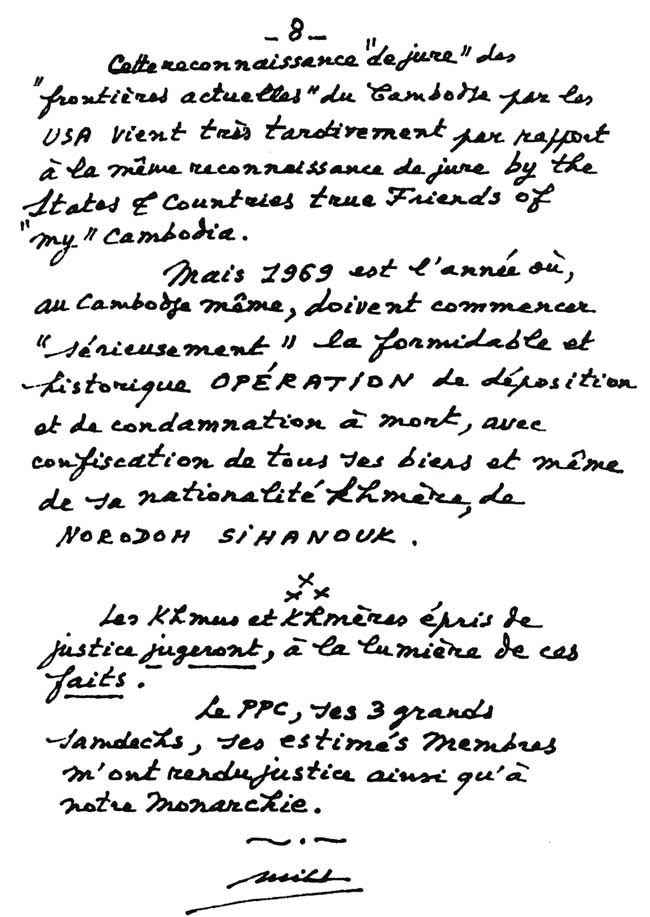 - 8 -
Cette reconnaissance "de jure" des
"frontières actuelles" du Cambodge par les
USA vient très tardivement par rapport
à la même reconnaissance de jure by the
States & Countries true Friends of
"my" Cambodia.
Mais 1969 est l'année où,
au Cambodge même, doivent commencer
"sérieusement" la formidable et
historique OPÉRATION de déposition
et de condamnation à mort, avec
confiscation de tous ses biens et même
de sa nationalité khmère, de
NORODOM SIHANOUK.
x
x x
Les Khmers et Khmères épris de
justice jugeront, à la lumière de ces
faits.
Le PPC, ses 3 grands
Samdechs, ses estimés Membres
m'ont rendu justice ainsi qu'à
notre Monarchie.